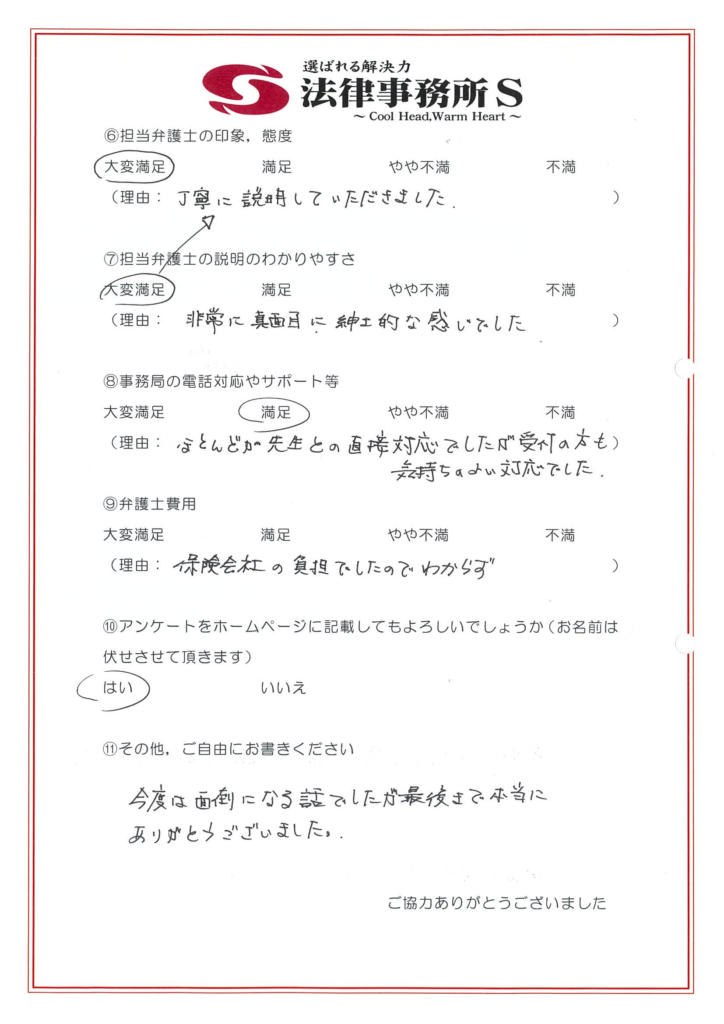 選ばれる解決力
法律事務所S
～Cool Head,Warm Heart～
⑥担当弁護士の印象，態度
大変満足 満足 やや不満 不満
（理由： 丁寧に説明していただきました． ）
⑦担当弁護士の説明のわかりやすさ
大変満足 満足 やや不満 不満
（理由： 非常に真面目に紳士的な感じでした ）
⑧事務局の電話対応やサポート等
大変満足 満足 やや不満 不満
（理由： ほとんどが先生との直接対応でしたが受付の方も）
気持ちのよい対応でした．
⑨弁護士費用
大変満足 満足 やや不満 不満
（理由： 保険会社の負担でしたのでわからず ）
⑩アンケートをホームページに記載してもよろしいでしょうか（お名前は
伏せさせて頂きます）
はい いいえ
⑪その他，ご自由にお書きください
今度は面倒になる話でしたが最後まで本当に
ありがとうございました。
ご協力ありがとうございました